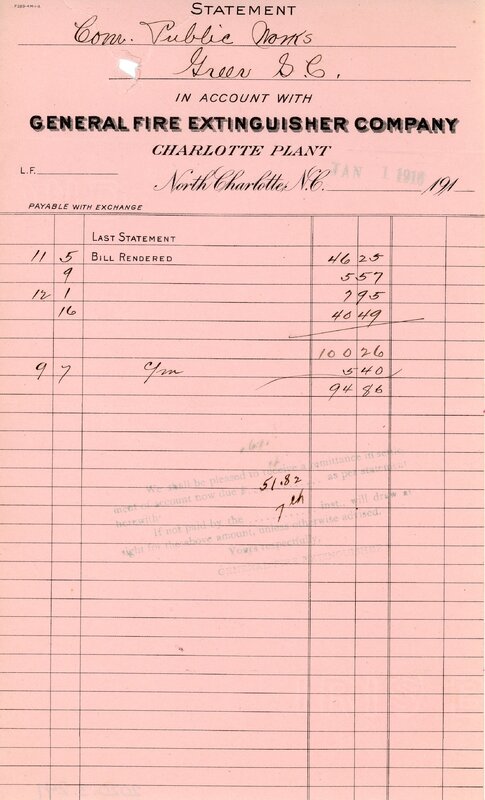 STATEMENT
Com. Public Works
Greer S.C.
IN ACCOUNT WITH
GENERAL FIRE EXTINGUISHER COMPANY
CHARLOTTE PLANT
L.F.
North Charlotte, N.C. JAN 1 1916 191
PAYABLE WITH EXCHANGE
LAST STATEMENT
11 5 BILL RENDERED 46 25
9 5 57
12 1 7 95
16 40 49
100 26
9 7 C/m 5 40
94 86
We shall be pleased to receive a remittance in settle-
ment of account now due $ 51.82 as per statement
herewith.
If not paid by the 7th inst., will draw at
sight for the above amount, unless otherwise advised.
Yours respectfully,